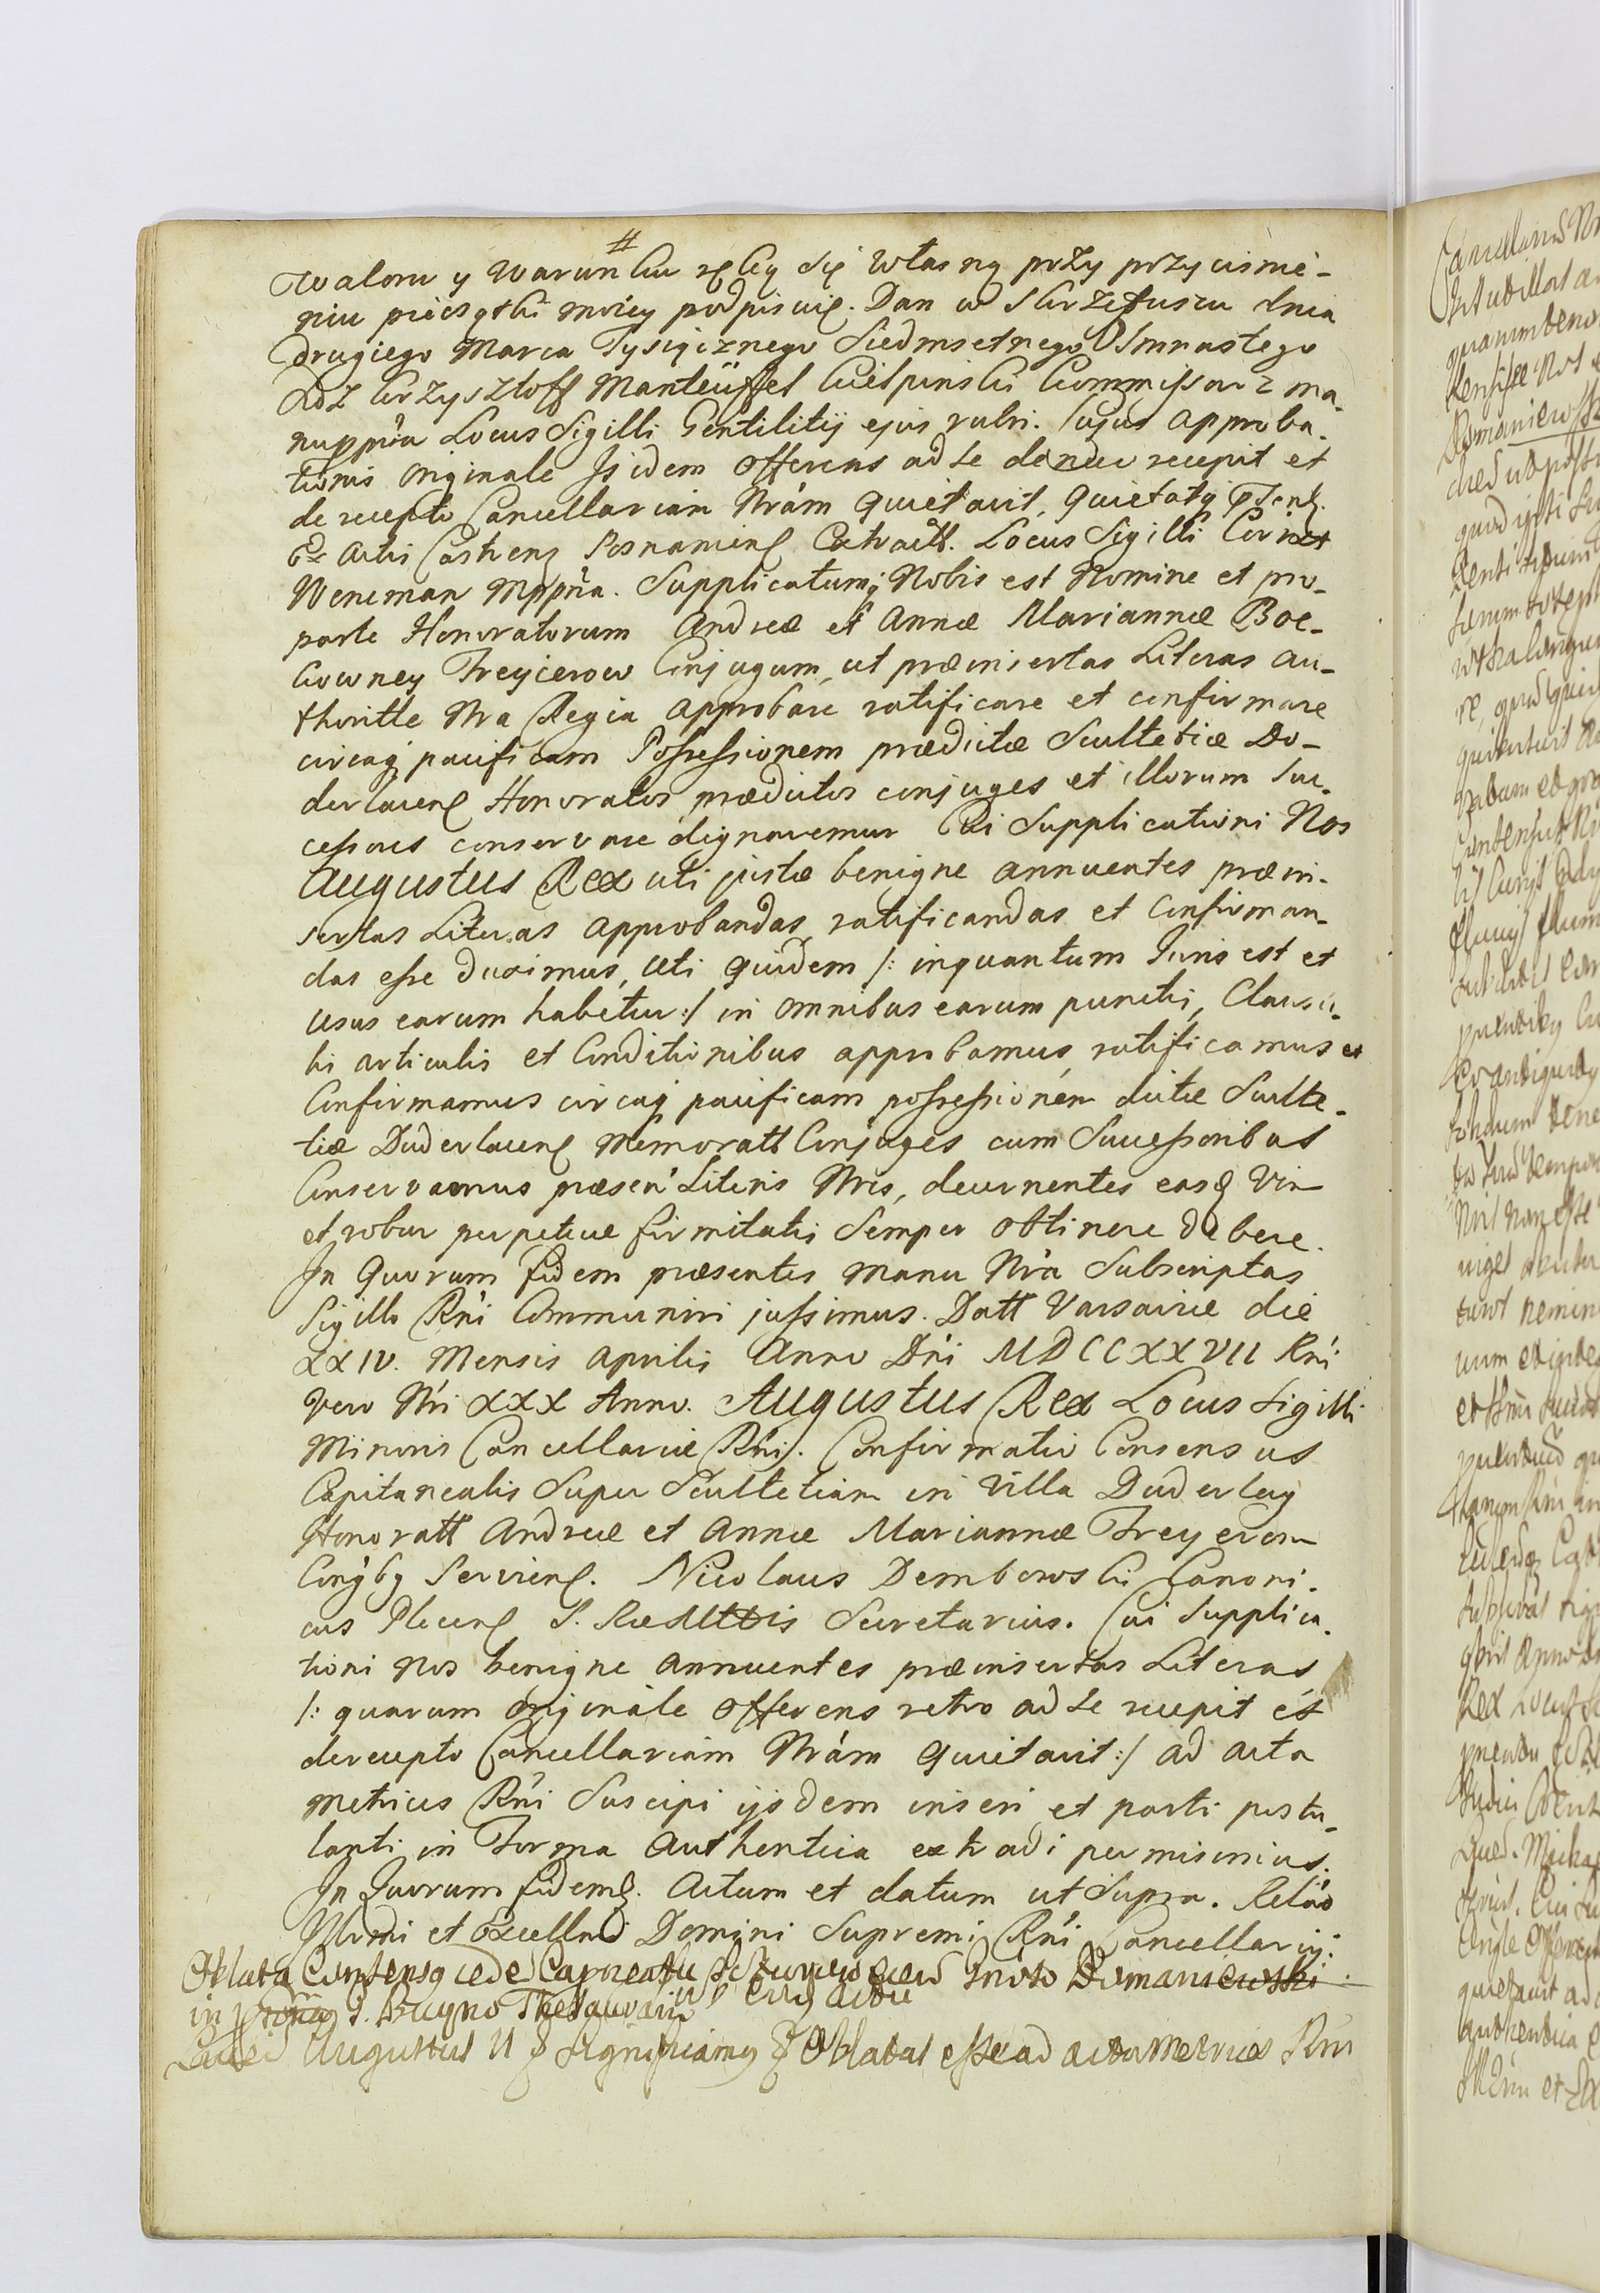 #
waloru y warunku ręką się własną przy przycisnie-
niu pieczątki moiey podpisuię. Dan w Skrzetuszu dnia
drugiego Marca Tysiącznego Siedmsetnego Osmnastego
Krzysztoff Manteüffel Kiełpinski Commissarz ma-
nupp̃ria Locus Sigilli Gentilitij ejus rubri. Cujus approba-
tionis originale Isidem offerens ad se denuo recepit et
de recepto Cancellariam Nrám quietavit, quietatq̃
Ex Actis Castrenˢ Posnanienˢ Extractt. Locus Sigilli
Weneman Mppria. Supplicatumq̃ Nobis est Nomine et pro
parte Honoratorum Andreæ et Annæ Mariannæ Boe-
Freyierow Conjugum, ut præinsertas Literas au-
thoritte Nra Regia approbare ratificare et confirmare
circaq̃ pacificam Possessionem prædictæ Scultetiæ Do-
derlacenˢ Honoratos prædictos conjuges et illorum suc-
cessores conservare dignaremur Cui Supplicationi Nos
Augustus Rex uti justæ benigne annuentes præin-
sertas Literas approbandas ratificandas et Confirman-
das esse duximus, uti quidem /: inquantum Juris est et
usus earum habetur :/ in omnibus earum punctis, Clausu-
lis articulis et Conditionibus approbamus, ratificamus et
Confirmamus circaq̃ pacificam possessionem dictæ Sculte-
tiæ Duderlacenˢ Memoratt Conjuges cum Successoribus
Conservamus præsen̄ Literis Nris, decernentes easq̃ Vim
et robur perpetuæ firmitatis Semper obtinere debere.
In Quorum fidem præsentes manu Nrá Subscriptas
Sigillo Rńi Communiri jussimus. Datt Varsaviæ die
XXIV. Mensis Aprilis Anno Dńi MDCCXXVII Rńi
Vero Nri XXX Anno. Augustus Rex Locus Sigilli
Minoris Cancellariæ Rńi. Confirmatio Consensus
Capitanealis Super Scultetiam in Villa Duderlag
Honoratt Andreæ et Annæ Mariannæ Freyerom
Conjbq Servienˢ. Nicolaus Dembowski Canoni-
cus Plocenˢ S. Secretarius. Cui Supplica-
tioni nos benigne annuentes præinsertas Literas
/: quarum originale offerens retro ad se recepit et
de recepto Cancellariam Nrám quietavit :/ ad acta
metrices Rńi Suscipi ijsdem inseri et parti postu-
lanti in Forma Authentica extradi permisimus.
In Quorum fidem. Actum et datum ut Supra. Relão
Illrmi et Excellmi Domini Supremi Rńi Cancellarij.
Oblata Domaniewski
in Thesaurario
Augustus II Significamus Oblatas esse ad acta Metrices Rńi